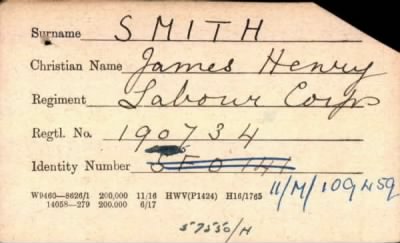 Surname SMITH
Christian Name James Henry
Regiment Labour Corps
Regtl. No. 190734
Identity Number
W9460—8626/1 200,000 11/16 HWV(P1424) H16/1765
14058—279 200.000 6/17
11/M/109459
57550/M